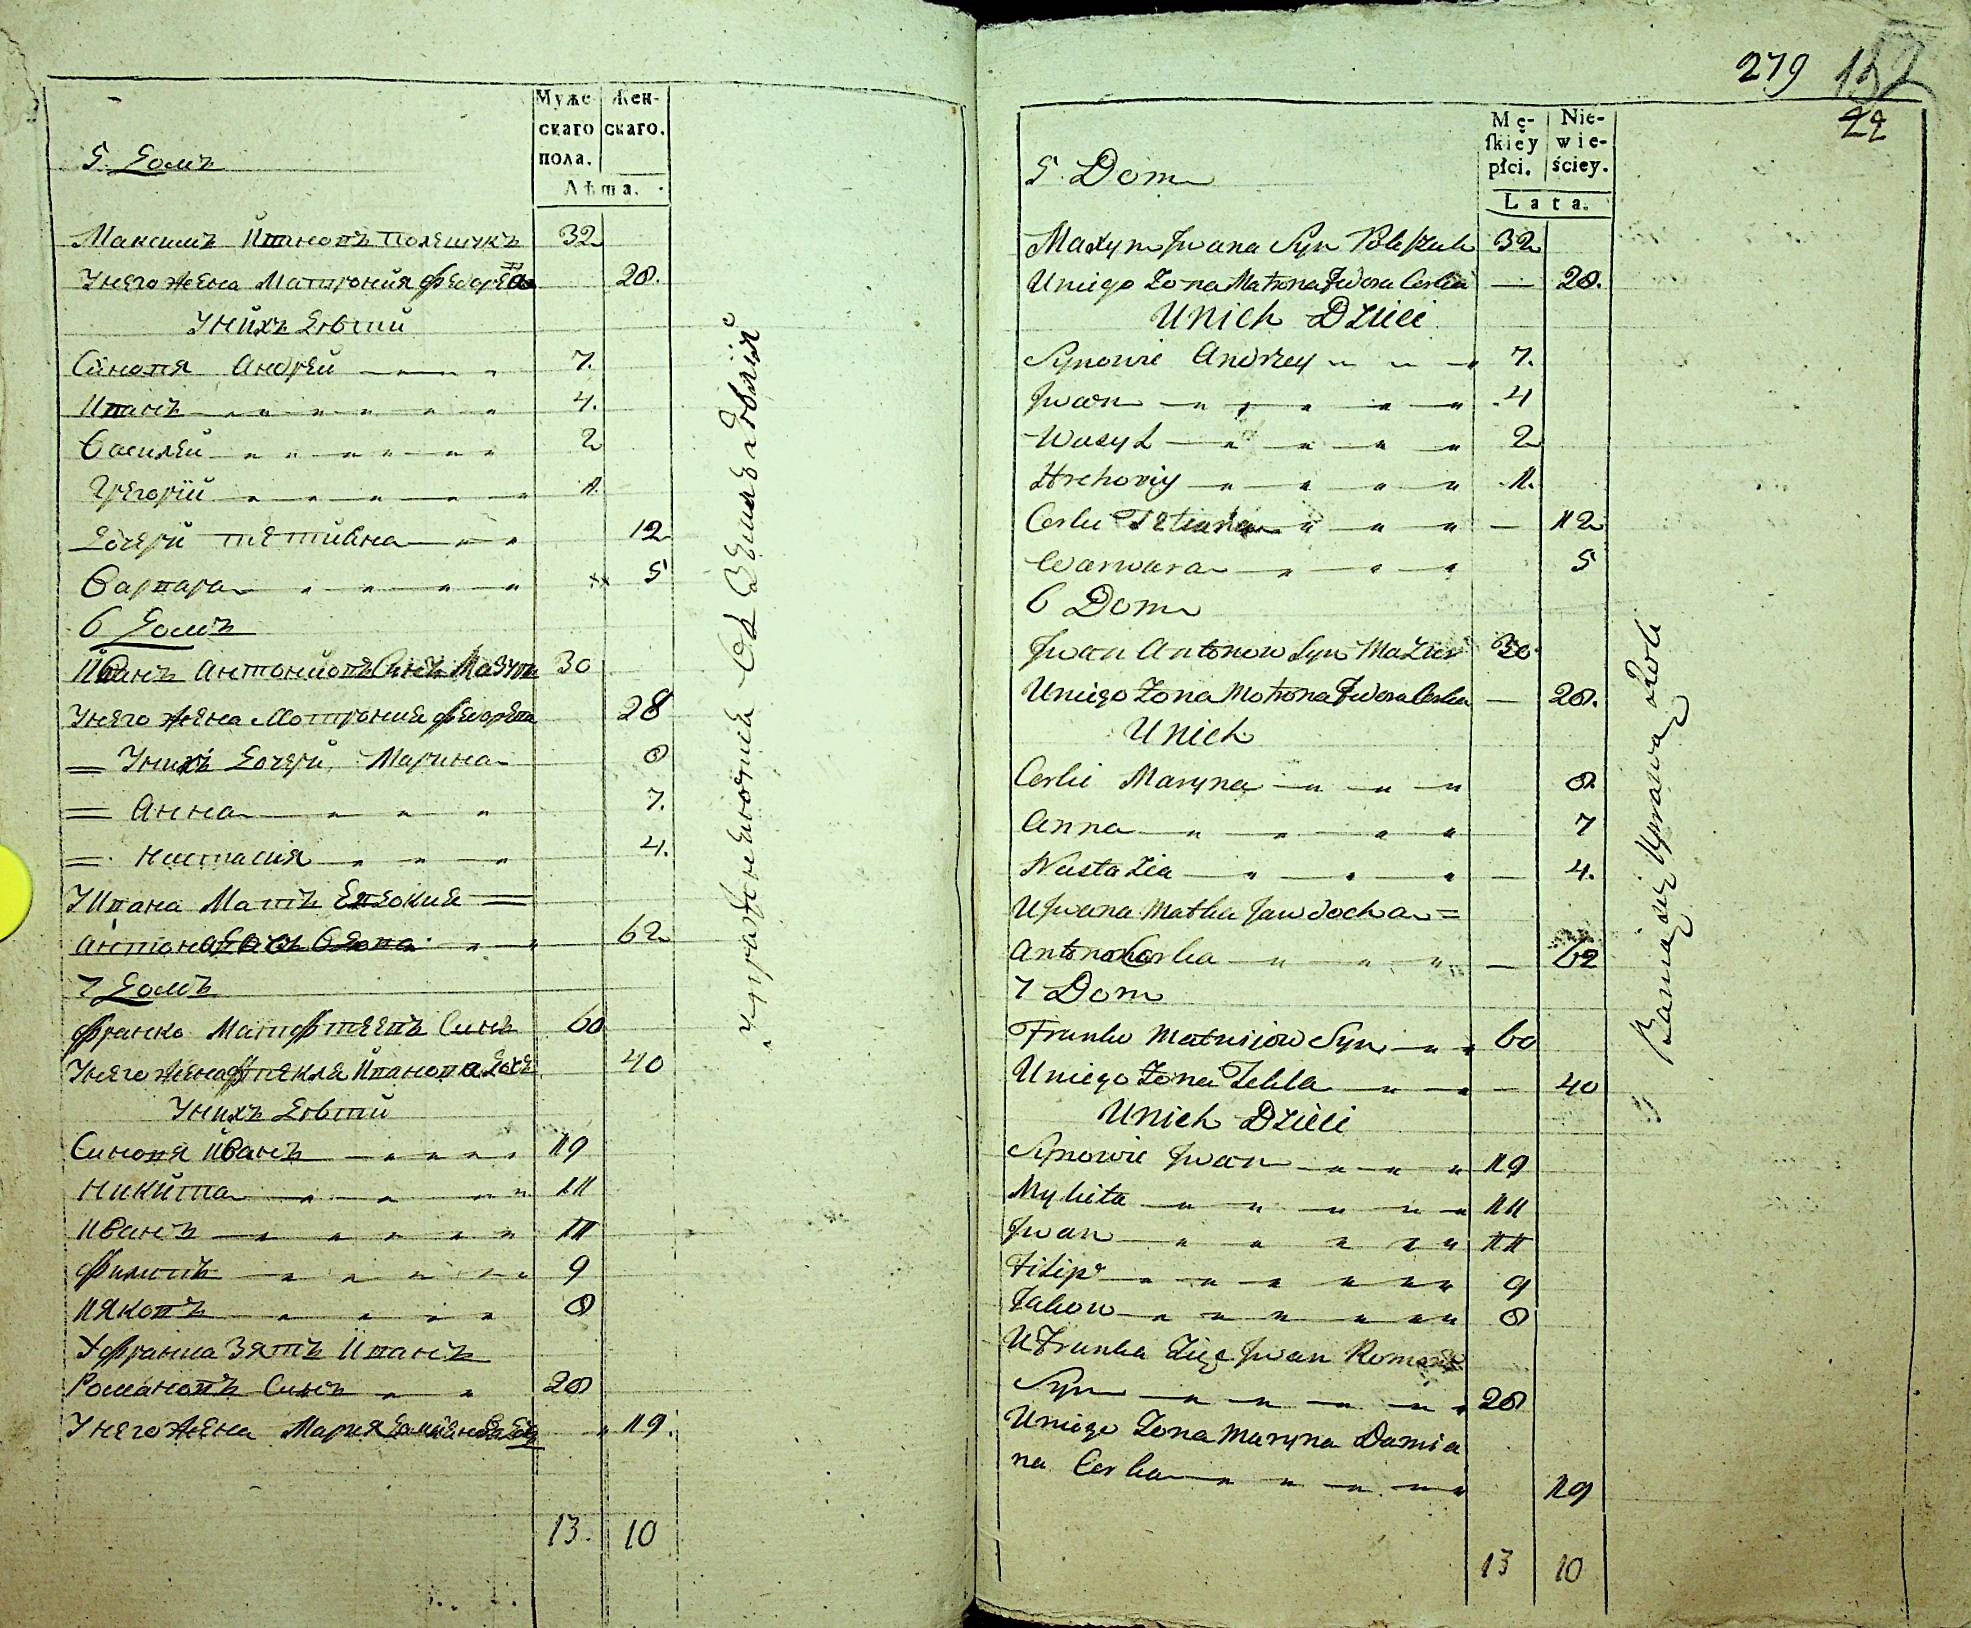 Муже-
скаго
пола.
Жен-
скаго.
Лѣта.
5. Домъ
Максимъ Ивановъ Полещукъ 32
Унего жена Матрония Федорева 28.
Унихъ Дѣти
Синовя Андрей 7.
Иванъ 4.
Василей 2
Грегорий 1.
Дочери Тетиана 12
Варвара 5
6 Домъ
Иванъ Антониовъ Синъ Мазуръ 30
Унего жена Мотрония Федорева 28
Унихъ Дочери, Марина 8
Анна 7.
Настасия 4.
УИвана Матъ Евдокия
Антонова 62
7 Домъ
Франко Матфтеевъ Синъ 60
Унего жена Фтекля Иванова Доч 40
Унихъ Дѣти
Синовя Иванъ 19
Никита 11
Иванъ 11
Филипъ 9
Ияковъ 8
УФранка Зять Иванъ
Романовъ Синъ 28
Унего жена Мария Дамианова Доч 19.
13. 10
279 152
22
Mę-
ſkiéy
płci.
Nie-
wie-
ściey.
Lata.
5. Dom
Maxym Jwana Syn Poleszuk 32
Uniego Zona Matrona Fedora Corka 28.
Unich Dzieci
Synowie Andrzey 7.
Jwan 4
Wasyl 2
Hrehoriy 1.
Corki Tetiana 12
Warwara 5
6 Dom
Jwan Antonow Syn Mazur 30
Uniego Zona Motrona Fedora Corka 28.
Unich
Corki Maryna 8
Anna 7
Nastazia 4.
UJwana Matka Jawdocha
Antona Corka 62
7 Dom
Franko Matwiiow Syn 60
Uniego Zona Tekla 40
Unich Dzieci
Synowie Jwan 19
Mykita 11
Jwan 11
Filip 9
Jakow 8
UFranka Zięć Jwan Roman
Syn 28
Uniego Zona Maryna Damia
na Corka 19
13 10